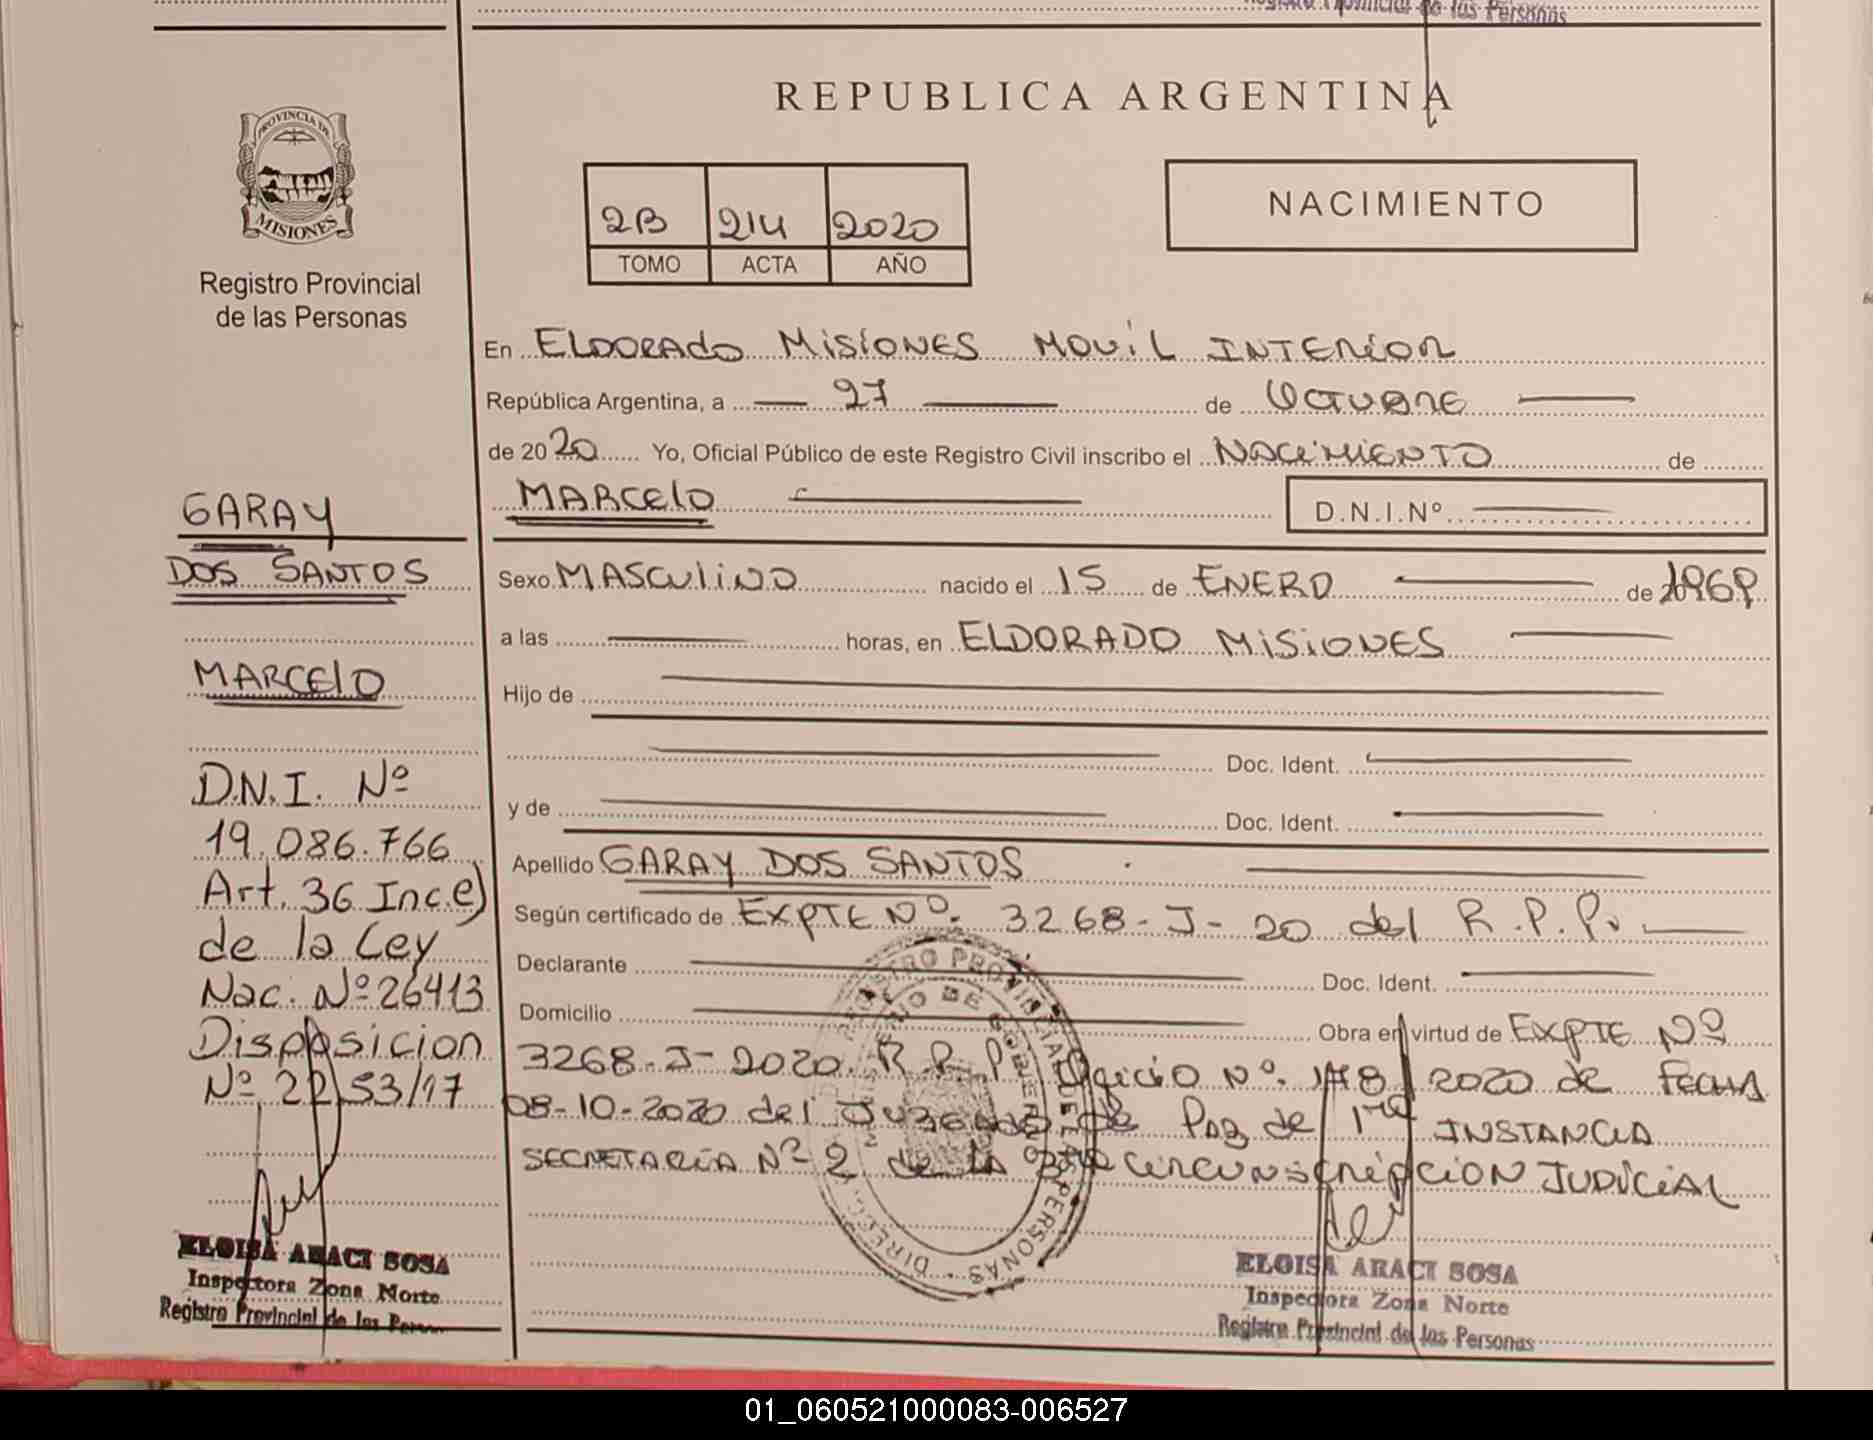 Registro Provincial de las Personas
REPUBLICA ARGENTINA
PROVINCIA DE
MISIONES
Registro Provincial
de las Personas
2B 214 2020
TOMO ACTA AÑO
NACIMIENTO
En ELDORADO MISIONES MOVIL INTERIOR
República Argentina, a 27 de OCTUBRE
de 2020 Yo, Oficial Público de este Registro Civil inscribo el NACIMIENTO de
MARCELO D.N.I.Nº
GARAY
DOS SANTOS
MARCELO
D.N.I. Nº
19.086.766
Art. 36 Inc.e)
de la Ley
Nac. Nº 26413
Disposicion
Nº 2253/17
ELOISA ARACI SOSA
Inspectora Zona Norte
Registro Provincial de las Person
Sexo MASCULINO nacido el 15 de ENERO de 1969
a las horas, en ELDORADO MISIONES
Hijo de
Doc. Ident.
y de
Doc. Ident.
Apellido GARAY DOS SANTOS
Según certificado de EXPTE Nº. 3268-J-20 del R.P.P.
Declarante Doc. Ident.
Domicilio Obra en virtud de EXPTE Nº
3268-J-2020 R.P.P. Oficio Nº. 178/2020 de FECHA
08-10-2020 del Juzgado de Paz de 1ra INSTANCIA
SECRETARÍA Nº 2 de LA CIRCUNSCRIPCION JUDICIAL
ELOISA ARACI SOSA
Inspectora Zona Norte
Registro Provincial de las Personas
01_060521000083-006527